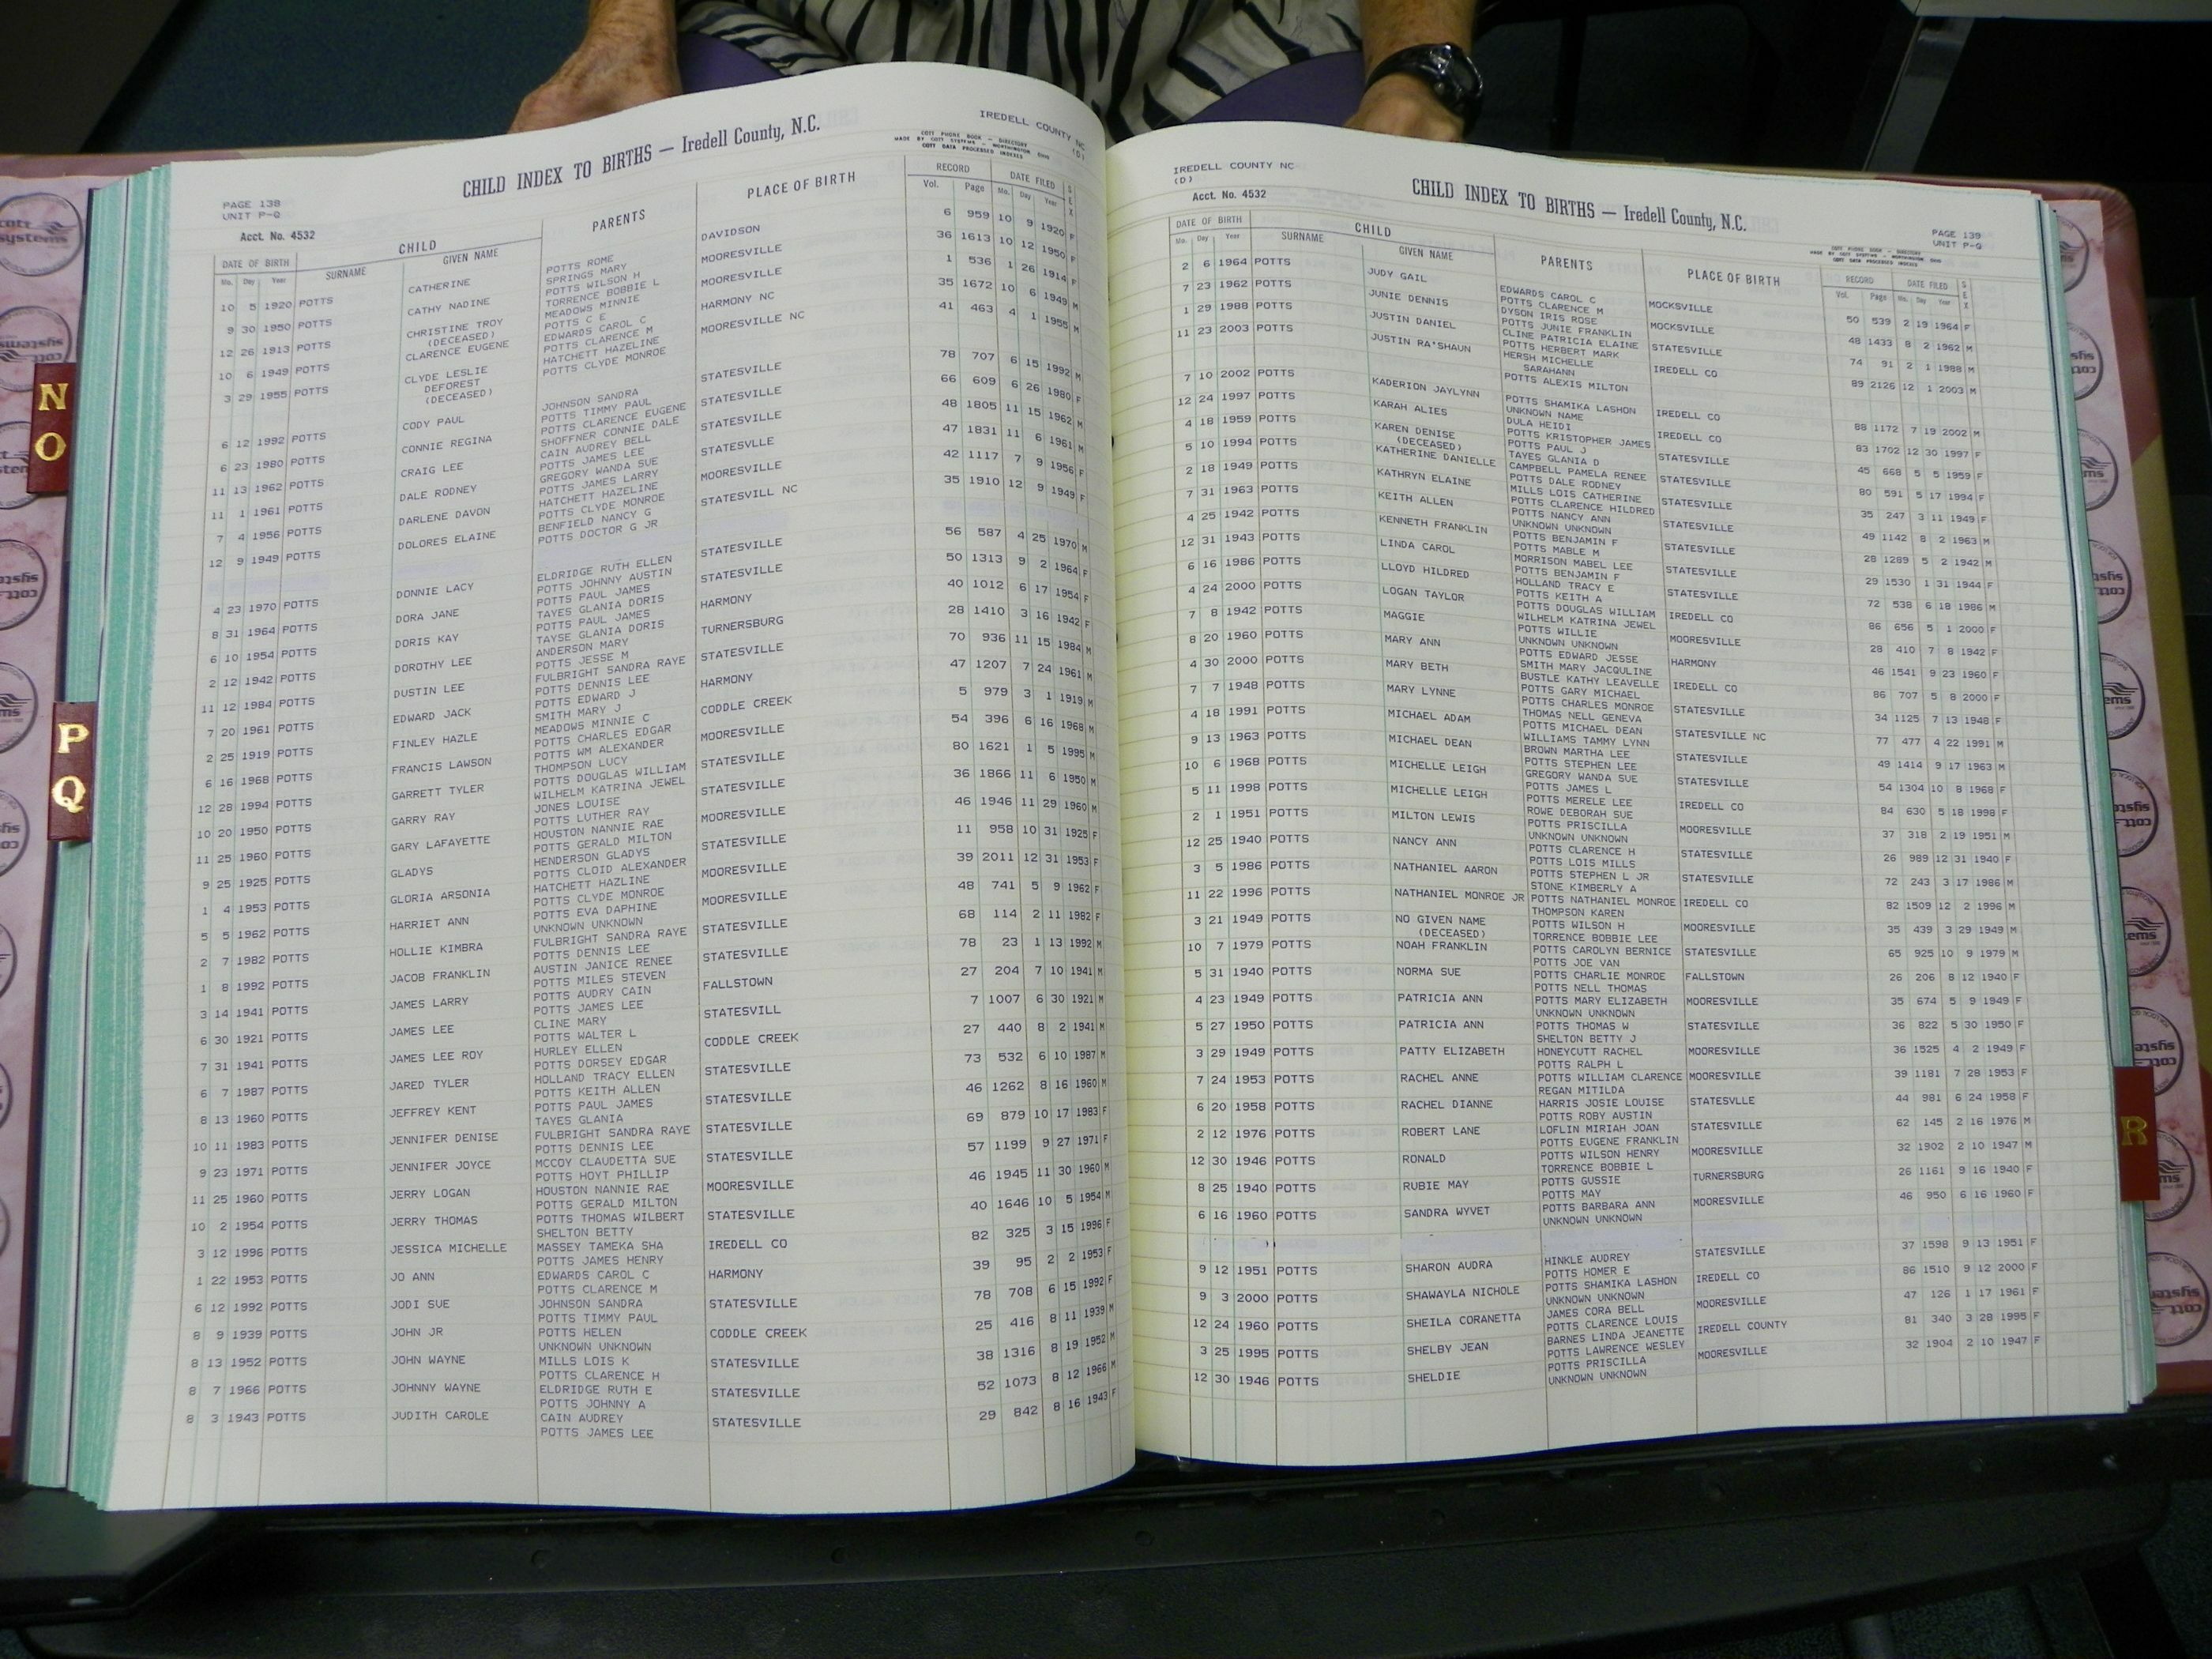 IREDELL COUNTY NC
(D)
CHILD INDEX TO BIRTHS — Iredell County, N.C.
COTT PHONE BOOK — DIRECTORY
MADE BY COTT SYSTEMS — WORTHINGTON OHIO
COTT DATA PROCESSED INDEXES
PAGE 138
UNIT P-Q
Acct. No. 4532
DATE OF BIRTH CHILD PARENTS PLACE OF BIRTH RECORD DATE FILED SEX
Mo. Day Year SURNAME GIVEN NAME Vol. Page Mo. Day Year
10 5 1920 POTTS CATHERINE POTTS ROME DAVIDSON 6 959 10 9 1920 F
SPRINGS MARY
9 30 1950 POTTS CATHY NADINE POTTS WILSON H MOORESVILLE 36 1613 10 12 1950 F
TORRENCE BOBBIE L
12 26 1913 POTTS CHRISTINE TROY MEADOWS MINNIE MOORESVILLE 1 536 1 26 1914 F
(DECEASED) POTTS C E
10 6 1949 POTTS CLARENCE EUGENE EDWARDS CAROL C HARMONY NC 35 1672 10 6 1949 M
POTTS CLARENCE M
3 29 1955 POTTS CLYDE LESLIE HATCHETT HAZELINE MOORESVILLE NC 41 463 4 1 1955 M
DEFOREST POTTS CLYDE MONROE
(DECEASED)
6 12 1992 POTTS CODY PAUL JOHNSON SANDRA STATESVILLE 78 707 6 15 1992 M
POTTS TIMMY PAUL
6 23 1980 POTTS CONNIE REGINA POTTS CLARENCE EUGENE STATESVILLE 66 609 6 26 1980 F
SHOFFNER CONNIE DALE
11 13 1962 POTTS CRAIG LEE CAIN AUDREY BELL STATESVILLE 48 1805 11 15 1962 M
POTTS JAMES LEE
11 1 1961 POTTS DALE RODNEY GREGORY WANDA SUE STATESVLLE 47 1831 11 6 1961 M
POTTS JAMES LARRY
7 4 1956 POTTS DARLENE DAVON HATCHETT HAZELINE MOORESVILLE 42 1117 7 9 1956 F
POTTS CLYDE MONROE
12 9 1949 POTTS DOLORES ELAINE BENFIELD NANCY G STATESVILL NC 35 1910 12 9 1949 F
POTTS DOCTOR G JR
4 23 1970 POTTS DONNIE LACY ELDRIDGE RUTH ELLEN STATESVILLE 56 587 4 25 1970 M
POTTS JOHNNY AUSTIN
8 31 1964 POTTS DORA JANE POTTS PAUL JAMES STATESVILLE 50 1313 9 2 1964 F
TAYES GLANIA DORIS
6 10 1954 POTTS DORIS KAY POTTS PAUL JAMES HARMONY 40 1012 6 17 1954 F
TAYSE GLANIA DORIS
2 12 1942 POTTS DOROTHY LEE ANDERSON MARY TURNERSBURG 28 1410 3 16 1942 F
POTTS JESSE M
11 12 1984 POTTS DUSTIN LEE FULBRIGHT SANDRA RAYE STATESVILLE 70 936 11 15 1984 M
POTTS DENNIS LEE
7 20 1961 POTTS EDWARD JACK POTTS EDWARD J HARMONY 47 1207 7 24 1961 M
SMITH MARY J
2 25 1919 POTTS FINLEY HAZLE MEADOWS MINNIE C CODDLE CREEK 5 979 3 1 1919 M
POTTS CHARLES EDGAR
6 16 1968 POTTS FRANCIS LAWSON POTTS WM ALEXANDER MOORESVILLE 54 396 6 16 1968 M
THOMPSON LUCY
12 28 1994 POTTS GARRETT TYLER POTTS DOUGLAS WILLIAM STATESVILLE 80 1621 1 5 1995 M
WILHELM KATRINA JEWEL
10 20 1950 POTTS GARRY RAY JONES LOUISE STATESVILLE 36 1866 11 6 1950 M
POTTS LUTHER RAY
11 25 1960 POTTS GARY LAFAYETTE HOUSTON NANNIE RAE MOORESVILLE 46 1946 11 29 1960 M
POTTS GERALD MILTON
9 25 1925 POTTS GLADYS HENDERSON GLADYS STATESVILLE 11 958 10 31 1925 F
POTTS CLOID ALEXANDER
1 4 1953 POTTS GLORIA ARSONIA HATCHETT HAZLINE MOORESVILLE 39 2011 12 31 1953 F
POTTS CLYDE MONROE
5 5 1962 POTTS HARRIET ANN POTTS EVA DAPHINE MOORESVILLE 48 741 5 9 1962 F
UNKNOWN UNKNOWN
2 7 1982 POTTS HOLLIE KIMBRA FULBRIGHT SANDRA RAYE STATESVILLE 68 114 2 11 1982 F
POTTS DENNIS LEE
1 8 1992 POTTS JACOB FRANKLIN AUSTIN JANICE RENEE STATESVILLE 78 23 1 13 1992 M
POTTS MILES STEVEN
3 14 1941 POTTS JAMES LARRY POTTS AUDRY CAIN FALLSTOWN 27 204 7 10 1941 M
POTTS JAMES LEE
6 30 1921 POTTS JAMES LEE CLINE MARY STATESVILL 7 1007 6 30 1921 M
POTTS WALTER L
7 31 1941 POTTS JAMES LEE ROY HURLEY ELLEN CODDLE CREEK 27 440 8 2 1941 M
POTTS DORSEY EDGAR
6 7 1987 POTTS JARED TYLER HOLLAND TRACY ELLEN STATESVILLE 73 532 6 10 1987 M
POTTS KEITH ALLEN
8 13 1960 POTTS JEFFREY KENT POTTS PAUL JAMES STATESVILLE 46 1262 8 16 1960 M
TAYES GLANIA
10 11 1983 POTTS JENNIFER DENISE FULBRIGHT SANDRA RAYE STATESVILLE 69 879 10 17 1983 F
POTTS DENNIS LEE
9 23 1971 POTTS JENNIFER JOYCE MCCOY CLAUDETTA SUE STATESVILLE 57 1199 9 27 1971 F
POTTS HOYT PHILLIP
11 25 1960 POTTS JERRY LOGAN HOUSTON NANNIE RAE MOORESVILLE 46 1945 11 30 1960 M
POTTS GERALD MILTON
10 2 1954 POTTS JERRY THOMAS POTTS THOMAS WILBERT STATESVILLE 40 1646 10 5 1954 M
SHELTON BETTY
3 12 1996 POTTS JESSICA MICHELLE MASSEY TAMEKA SHA IREDELL CO 82 325 3 15 1996 F
POTTS JAMES HENRY
1 22 1953 POTTS JO ANN EDWARDS CAROL C HARMONY 39 95 2 2 1953 F
POTTS CLARENCE M
6 12 1992 POTTS JODI SUE JOHNSON SANDRA STATESVILLE 78 708 6 15 1992 F
POTTS TIMMY PAUL
8 9 1939 POTTS JOHN JR POTTS HELEN CODDLE CREEK 25 416 8 11 1939 M
UNKNOWN UNKNOWN
8 13 1952 POTTS JOHN WAYNE MILLS LOIS K STATESVILLE 38 1316 8 19 1952 M
POTTS CLARENCE H
8 7 1966 POTTS JOHNNY WAYNE ELDRIDGE RUTH E STATESVILLE 52 1073 8 12 1966 M
POTTS JOHNNY A
8 3 1943 POTTS JUDITH CAROLE CAIN AUDREY STATESVILLE 29 842 8 16 1943 F
POTTS JAMES LEE
N
O
P
Q
IREDELL COUNTY NC
(D)
Acct. No. 4532
CHILD INDEX TO BIRTHS — Iredell County, N.C.
PAGE 139
UNIT P-Q
COTT PHONE BOOK — DIRECTORY
MADE BY COTT SYSTEMS — WORTHINGTON OHIO
COTT DATA PROCESSED INDEXES
DATE OF BIRTH CHILD PARENTS PLACE OF BIRTH RECORD DATE FILED SEX
Mo. Day Year SURNAME GIVEN NAME Vol. Page Mo. Day Year
2 6 1964 POTTS JUDY GAIL EDWARDS CAROL C MOCKSVILLE 50 539 2 19 1964 F
POTTS CLARENCE M
7 23 1962 POTTS JUNIE DENNIS DYSON IRIS ROSE MOCKSVILLE 48 1433 8 2 1962 M
POTTS JUNIE FRANKLIN
1 29 1988 POTTS JUSTIN DANIEL CLINE PATRICIA ELAINE STATESVILLE 74 91 2 1 1988 M
POTTS HERBERT MARK
11 23 2003 POTTS JUSTIN RA'SHAUN HERSH MICHELLE IREDELL CO 89 2126 12 1 2003 M
SARAHANN
POTTS ALEXIS MILTON
7 10 2002 POTTS KADERION JAYLYNN POTTS SHAMIKA LASHON IREDELL CO 88 1172 7 19 2002 M
UNKNOWN NAME
12 24 1997 POTTS KARAH ALIES DULA HEIDI IREDELL CO 83 1702 12 30 1997 F
POTTS KRISTOPHER JAMES
4 18 1959 POTTS KAREN DENISE POTTS PAUL J STATESVILLE 45 668 5 5 1959 F
(DECEASED) TAYES GLANIA D
5 10 1994 POTTS KATHERINE DANIELLE CAMPBELL PAMELA RENEE STATESVILLE 80 591 5 17 1994 F
POTTS DALE RODNEY
2 18 1949 POTTS KATHRYN ELAINE MILLS LOIS CATHERINE STATESVILLE 35 247 3 11 1949 F
POTTS CLARENCE HILDRED
7 31 1963 POTTS KEITH ALLEN POTTS NANCY ANN STATESVILLE 49 1142 8 2 1963 M
UNKNOWN UNKNOWN
4 25 1942 POTTS KENNETH FRANKLIN POTTS BENJAMIN F STATESVILLE 28 1289 5 2 1942 M
POTTS MABLE M
12 31 1943 POTTS LINDA CAROL MORRISON MABEL LEE STATESVILLE 29 1530 1 31 1944 F
POTTS BENJAMIN F
6 16 1986 POTTS LLOYD HILDRED HOLLAND TRACY E STATESVILLE 72 538 6 18 1986 M
POTTS KEITH A
4 24 2000 POTTS LOGAN TAYLOR POTTS DOUGLAS WILLIAM IREDELL CO 86 656 5 1 2000 F
WILHELM KATRINA JEWEL
7 8 1942 POTTS MAGGIE POTTS WILLIE MOORESVILLE 28 410 7 8 1942 F
UNKNOWN UNKNOWN
8 20 1960 POTTS MARY ANN POTTS EDWARD JESSE HARMONY 46 1541 9 23 1960 F
SMITH MARY JACQULINE
4 30 2000 POTTS MARY BETH BUSTLE KATHY LEAVELLE IREDELL CO 86 707 5 8 2000 F
POTTS GARY MICHAEL
7 7 1948 POTTS MARY LYNNE POTTS CHARLES MONROE STATESVILLE 34 1125 7 13 1948 F
THOMAS NELL GENEVA
4 18 1991 POTTS MICHAEL ADAM POTTS MICHAEL DEAN STATESVILLE NC 77 477 4 22 1991 M
WILLIAMS TAMMY LYNN
9 13 1963 POTTS MICHAEL DEAN BROWN MARTHA LEE STATESVILLE 49 1414 9 17 1963 M
POTTS STEPHEN LEE
10 6 1968 POTTS MICHELLE LEIGH GREGORY WANDA SUE STATESVILLE 54 1304 10 8 1968 F
POTTS JAMES L
5 11 1998 POTTS MICHELLE LEIGH POTTS MERELE LEE IREDELL CO 84 630 5 18 1998 F
ROWE DEBORAH SUE
2 1 1951 POTTS MILTON LEWIS POTTS PRISCILLA MOORESVILLE 37 318 2 19 1951 M
UNKNOWN UNKNOWN
12 25 1940 POTTS NANCY ANN POTTS CLARENCE H STATESVILLE 26 989 12 31 1940 F
POTTS LOIS MILLS
3 5 1986 POTTS NATHANIEL AARON POTTS STEPHEN L JR STATESVILLE 72 243 3 17 1986 M
STONE KIMBERLY A
11 22 1996 POTTS NATHANIEL MONROE JR POTTS NATHANIEL MONROE IREDELL CO 82 1509 12 2 1996 M
THOMPSON KAREN
3 21 1949 POTTS NO GIVEN NAME POTTS WILSON H MOORESVILLE 35 439 3 29 1949 M
(DECEASED) TORRENCE BOBBIE LEE
10 7 1979 POTTS NOAH FRANKLIN POTTS CAROLYN BERNICE STATESVILLE 65 925 10 9 1979 M
POTTS JOE VAN
5 31 1940 POTTS NORMA SUE POTTS CHARLIE MONROE FALLSTOWN 26 206 8 12 1940 F
POTTS NELL THOMAS
4 23 1949 POTTS PATRICIA ANN POTTS MARY ELIZABETH MOORESVILLE 35 674 5 9 1949 F
UNKNOWN UNKNOWN
5 27 1950 POTTS PATRICIA ANN POTTS THOMAS W STATESVILLE 36 822 5 30 1950 F
SHELTON BETTY J
3 29 1949 POTTS PATTY ELIZABETH HONEYCUTT RACHEL MOORESVILLE 36 1525 4 2 1949 F
POTTS RALPH L
7 24 1953 POTTS RACHEL ANNE POTTS WILLIAM CLARENCE MOORESVILLE 39 1181 7 28 1953 F
REGAN MITILDA
6 20 1958 POTTS RACHEL DIANNE HARRIS JOSIE LOUISE STATESVLLE 44 981 6 24 1958 F
POTTS ROBY AUSTIN
2 12 1976 POTTS ROBERT LANE LOFLIN MIRIAH JOAN STATESVILLE 62 145 2 16 1976 M
POTTS EUGENE FRANKLIN
12 30 1946 POTTS RONALD POTTS WILSON HENRY MOORESVILLE 32 1902 2 10 1947 M
TORRENCE BOBBIE L
8 25 1940 POTTS RUBIE MAY POTTS GUSSIE TURNERSBURG 26 1161 9 16 1940 F
POTTS MAY
6 16 1960 POTTS SANDRA WYVET POTTS BARBARA ANN MOORESVILLE 46 950 6 16 1960 F
UNKNOWN UNKNOWN
9 12 1951 POTTS SHARON AUDRA HINKLE AUDREY STATESVILLE 37 1598 9 13 1951 F
POTTS HOMER E
9 3 2000 POTTS SHAWAYLA NICHOLE POTTS SHAMIKA LASHON IREDELL CO 86 1510 9 12 2000 F
UNKNOWN UNKNOWN
12 24 1960 POTTS SHEILA CORANETTA JAMES CORA BELL MOORESVILLE 47 126 1 17 1961 F
POTTS CLARENCE LOUIS
3 25 1995 POTTS SHELBY JEAN BARNES LINDA JEANETTE IREDELL COUNTY 81 340 3 28 1995 F
POTTS LAWRENCE WESLEY
12 30 1946 POTTS SHELDIE POTTS PRISCILLA MOORESVILLE 32 1904 2 10 1947 F
UNKNOWN UNKNOWN
R
cott
systems